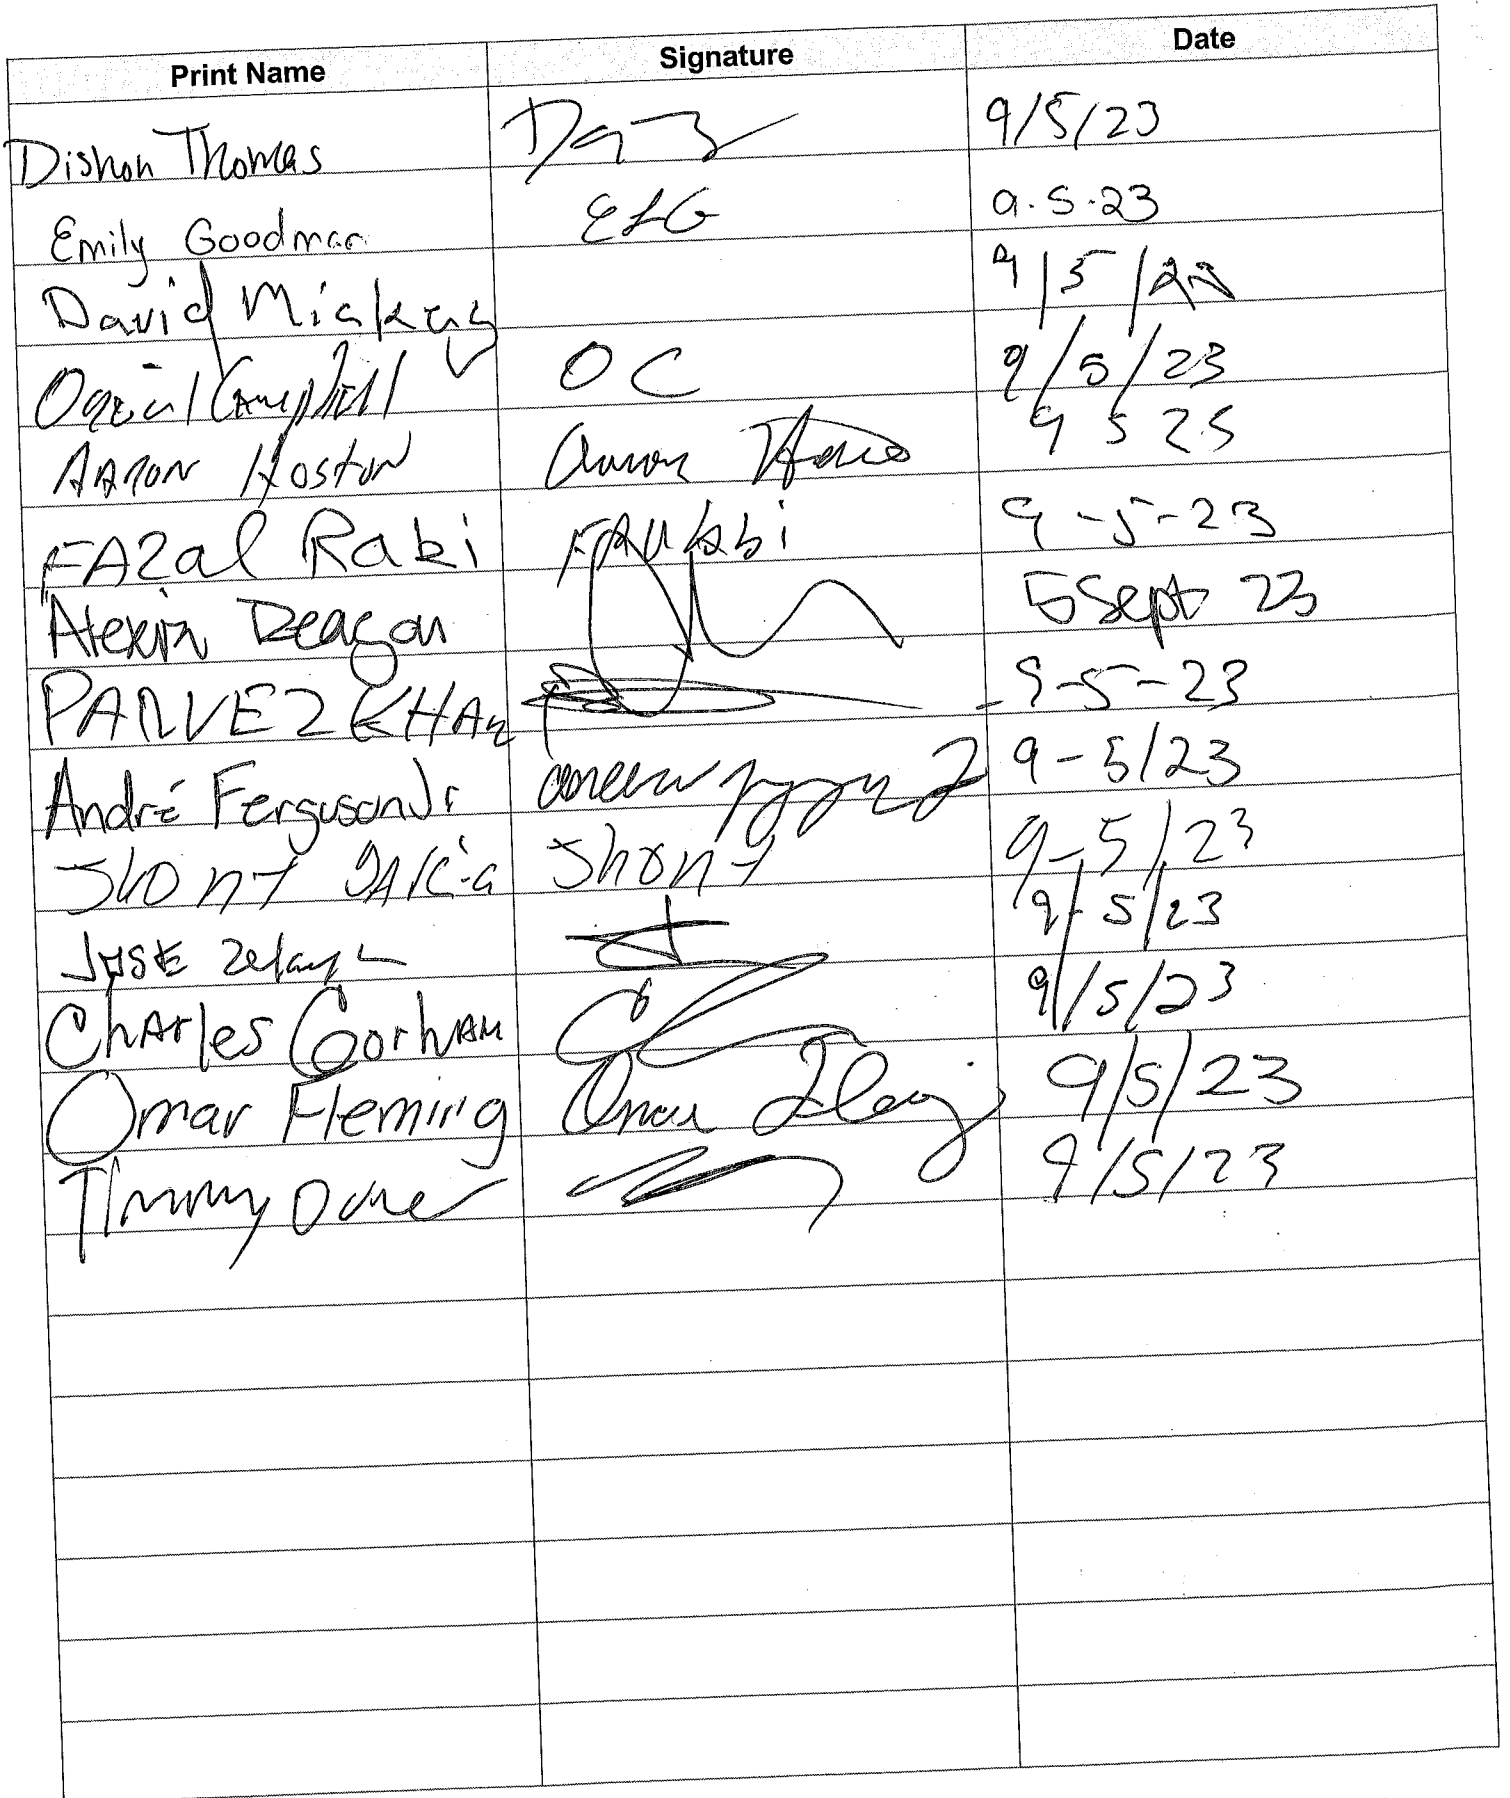 Print Name Signature Date
Dishon Thomas 9/5/23
Emily Goodman ELG 9.5.23
David 9/5/
Campbell OC 9/5/23
AARON Hoston Aaron 9 5 23
FAZal Rabi FAZal Rabbi 9-5-23
Deagon 5 Sept 23
PARVEZ KHAN 9-5-23
André Ferguson Jr 9-5/23
Shont Shont 9-5/23
JOSE Zelaya 9-5/23
Charles Gorham 9/5/23
Omar Fleming Omar Fleming 9/5/23
Timmy 9/5/23